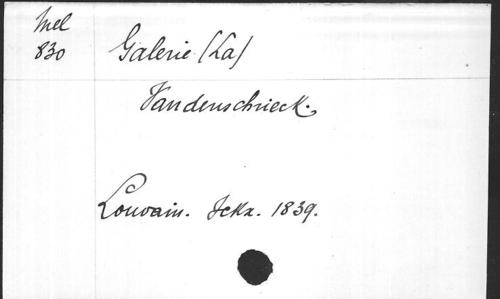 Mel
830
Galerie (La)
Vandenschrieck.
Louvain. Ickx. 1839.